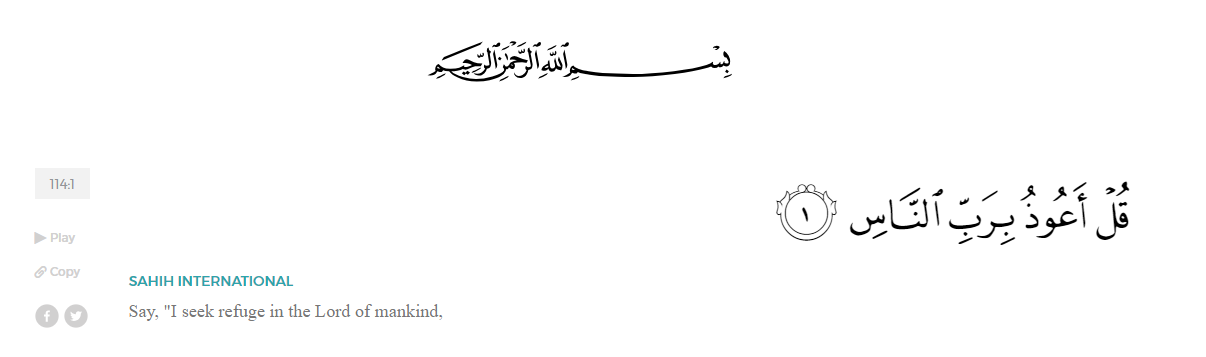 بِسْمِ ٱللَّهِ ٱلرَّحْمَٰنِ ٱلرَّحِيمِ
114:1
قُلْ أَعُوذُ بِرَبِّ ٱلنَّاسِ ١
Play
Copy
SAHIH INTERNATIONAL
Say, "I seek refuge in the Lord of mankind,